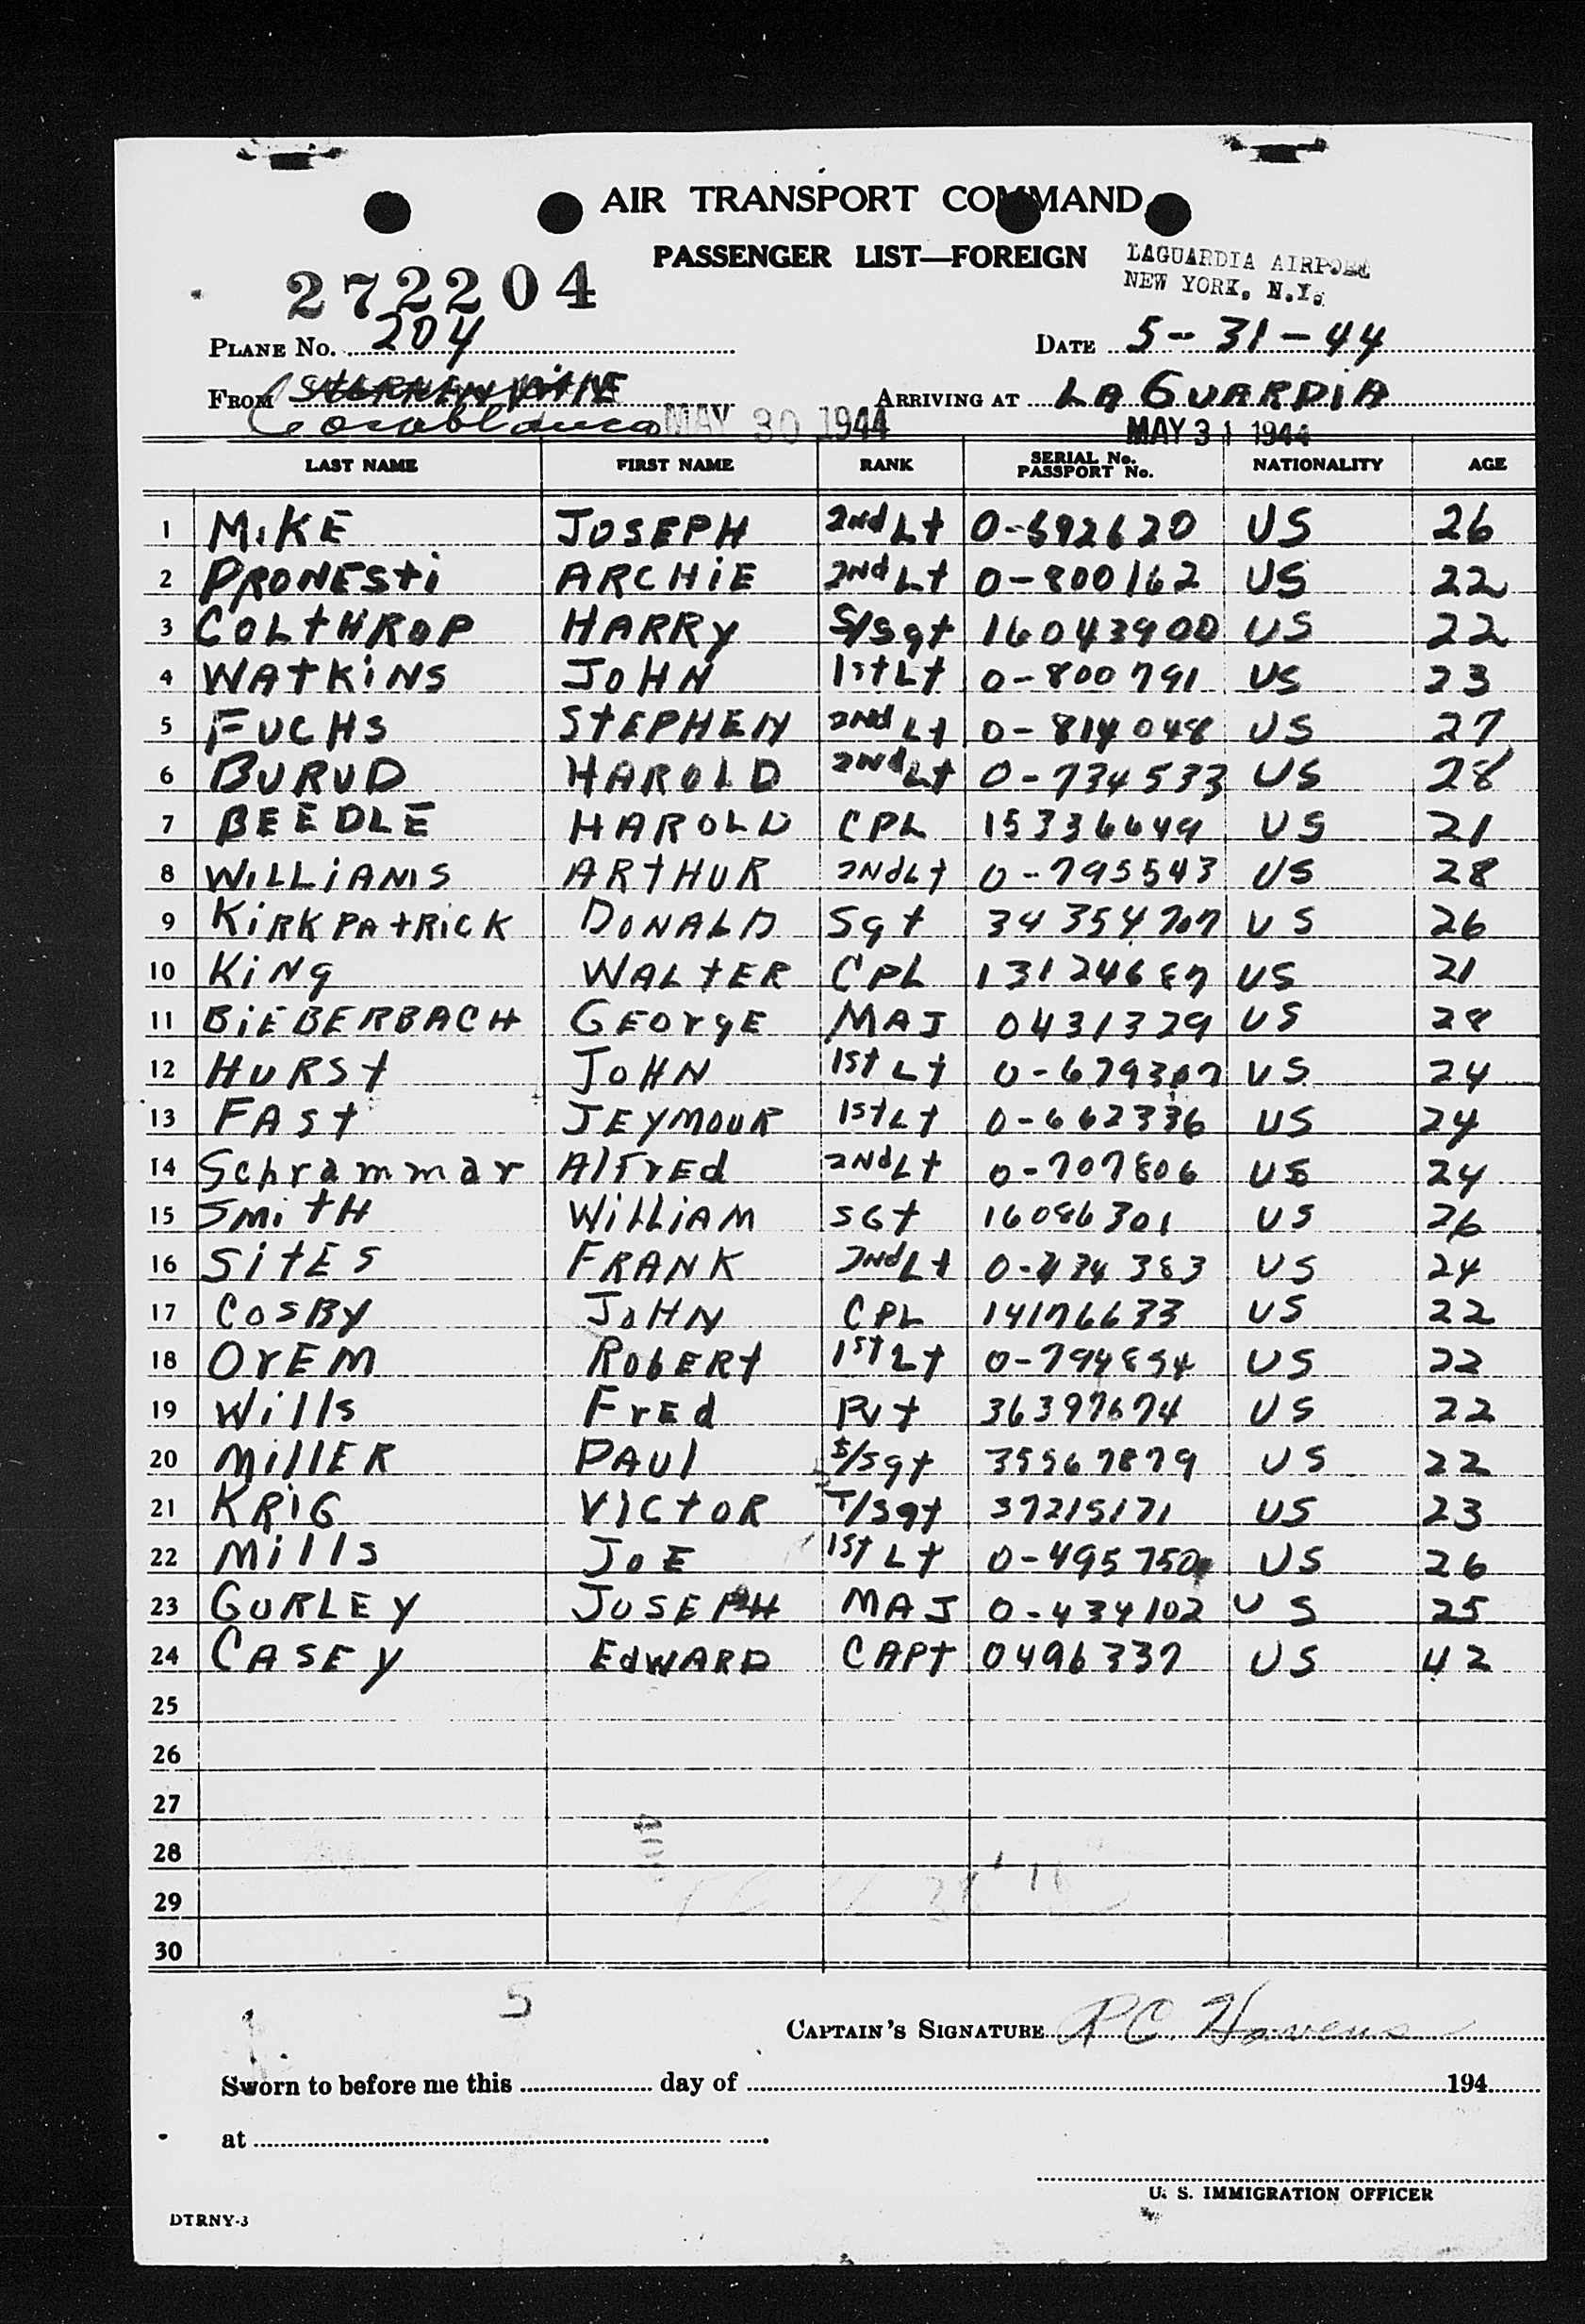 AIR TRANSPORT COMMAND
PASSENGER LIST—FOREIGN
LAGUARDIA AIRPORT
NEW YORK, N.Y.
272204
PLANE No. 204 DATE 5-31-44
FROM STEPHENVILLE ARRIVING AT LA GUARDIA
Casablanca MAY 30 1944 MAY 31 1944
LAST NAME FIRST NAME RANK SERIAL No. PASSPORT No. NATIONALITY AGE
1 MiKE JOSEPH 2nd Lt 0-692620 US 26
2 PRONESti ARCHiE 2Nd Lt 0-800162 US 22
3 COLtHROP HARRy S/Sgt 16043900 US 22
4 WAtKiNS JOHN 1st Lt 0-800791 US 23
5 FUCHS StEPHEN 2Nd Lt 0-814048 US 27
6 BURUD HAROLD 2Nd Lt 0-734533 US 28
7 BEEDLE HAROLD CPL 15336649 US 21
8 WiLLiAMS ARtHUR 2Nd Lt 0-795543 US 28
9 KiRKPAtRiCK DONALD Sgt 34354707 US 26
10 KiNg WALtER CPL 13124687 US 21
11 BiEBERBACH GEOrgE MAJ 0431329 US 28
12 HURSt JOHN 1st Lt 0-679307 US 24
13 FASt SEyMOUR 1st Lt 0-662336 US 24
14 Schrammar AlFrEd 2Nd Lt 0-707806 US 24
15 SMitH WilliAM SGt 16086301 US 26
16 SitES FRANK 2Nd Lt 0-434383 US 24
17 COSBy JOHN CPL 14176633 US 22
18 OrEM RObERt 1st Lt 0-794854 US 22
19 Wills FrEd Pvt 36397674 US 22
20 MillER PAUl S/Sgt 35567879 US 22
21 KRiG ViCtOR T/Sgt 37215171 US 23
22 Mills JOE 1st Lt 0-495750 US 26
23 GURLEy JOSEPH MAJ 0-434102 US 25
24 CASEy EdWARD CAPt 0496337 US 42
25
26
27
28
29
30
5
CAPTAIN'S SIGNATURE RC. Havens
Sworn to before me this day of 194
at
U. S. IMMIGRATION OFFICER
DTRNY-3